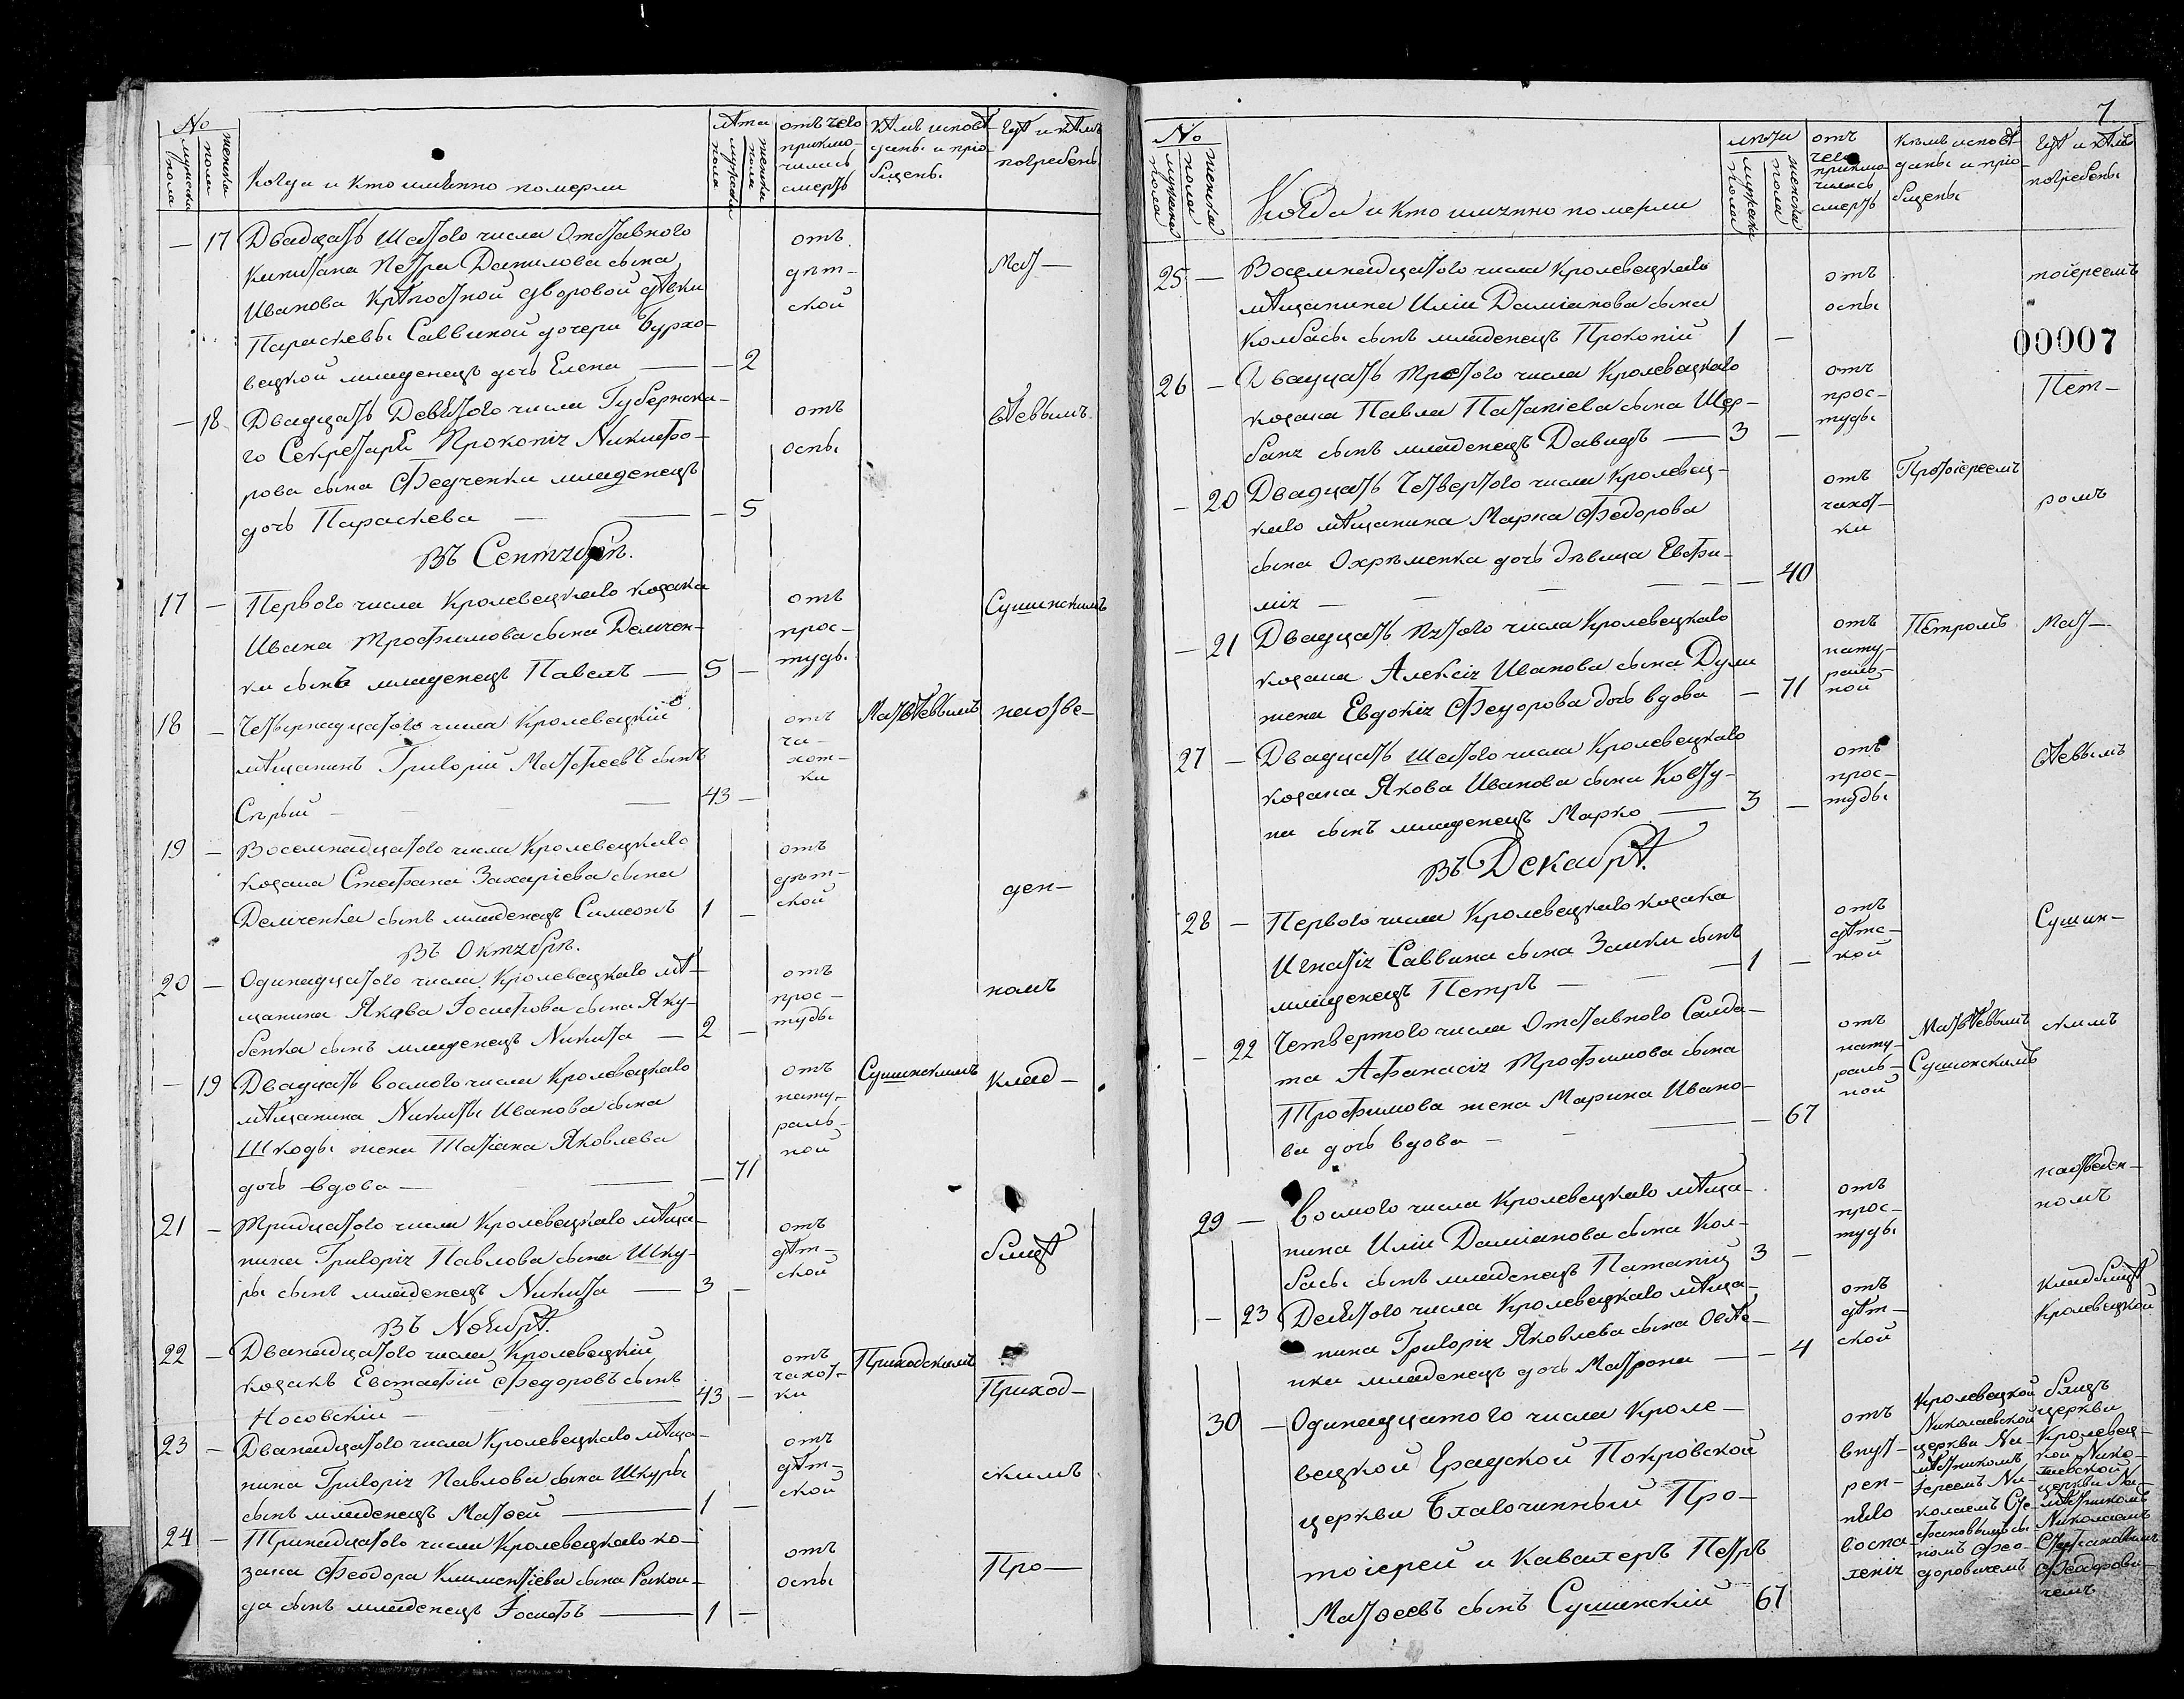 No
мужеска пола
женска пола
Когда и кто имѣнно померли
лѣта
мужеска пола
женска пола
отъ чего приклю-
чилась
смерть
кѣмъ исповѣ-
данъ и прiо-
бщенъ
Гдѣ и кѣмъ
погребенъ
— 17 Двадцать шестого числа Отставного
Капитана Петра Данилова сына
Иванова крѣпостной дворовой дѣвки
Параскевы Саввиной дочери Бурхо-
вецкой младенецъ дочь Елена — — 2
отъ
дѣт-
ской
Мат—
— 18 Двадцать Девятого числа Губернска-
го Секретаря Прокопія Никифо-
рова сына Федченки младенецъ
дочь Параскева — — 5
отъ
оспы
вѣевымъ
Въ Сентябрѣ.
17 — Первого числа Кролевецкаго козака
Ивана Трофимова сына Демчен-
ки сынъ младенецъ Павелъ — 5 —
отъ
прос-
туды
Сушинскимъ
18 — Четвернадцатого числа Кролевецкій
мѣщанинъ Григорій Матфеевъ сынъ
Сѣрый — 43 —
отъ
ча-
хот-
ки
Матвѣевымъ
наотве-
19 — Восемнадцатого числа Кролевецкаго
козака Стефана Захаріева сына
Демченка сынъ младенецъ Симеонъ 1 —
отъ
дѣт-
ской
ден—
Въ Октябрѣ.
20 — Одинадцатого числа Кролевецкаго мѣ-
щанина Якова Іосифова сына Яку-
бенка сынъ младенецъ Никита — 2 —
отъ
прос-
туды
номъ
— 19 Двадцать восмого числа Кролевецкаго
мѣщанина Никиты Иванова сына
Шкоды жена Татіана Яковлева
дочь вдова — — 71
отъ
нату-
раль-
ной
Сушинскимъ
клад—
21 — Тридцатого числа Кролевецкаго мѣща-
нина Григорія Павлова сына Шку-
ры сынъ младенецъ Никита — 3 —
отъ
дѣт-
ской
бищѣ
Въ Ноябрѣ.
22 — Дванадцатого числа Кролевецкій
козакъ Евстафій Федоровъ сынъ
Носовскій — 43 —
отъ
чахот-
ки
Приходскимъ
Приход—
23 — Дванадцатого числа Кролевецкаго мѣща-
нина Григорія Павлова сына Шкуры
сынъ младенецъ Матфей — 1 —
отъ
дѣт-
ской
скимъ
24 — Тринадцатого числа Кролевецкаго ко-
зака Феодора Климентіева сына
сынъ младенецъ Іосифъ — 1 —
отъ
оспы
Про—
7
No
мужеска пола
женска пола
Когда и кто имянно померли
лѣта
мужеска пола
женска пола
отъ
чего
приклю-
чилась
смерть
кѣмъ исповѣ-
данъ и прiо-
бщенъ
Гдѣ и кѣмъ
погребенъ
25 — Восемнадцатого числа Кролевецкаго
мѣщанина Иліи Даміанова сына
Колбасы сынъ младенецъ Прокопій 1 —
отъ
оспы
тоіереемъ
00007
26 — Двадцать третого числа Кролевецкаго
козака Павла Патапіева сына Щер-
бака сынъ младенецъ Давидъ — 3 —
отъ
прос-
туды
Пет—
— 20 Двадцать Четвертого числа Кролевец-
каго мѣщанина Марка Федорова
сына Охрѣменка дочь дѣвица Евфи-
мія — — 40
отъ
чахот-
ки
Протоіереемъ
ромъ
— 21 Двадцать пятого числа Кролевецкаго
козака Алексія Иванова сына Дули
жена Евдокія Федорова дочь вдова — 71
отъ
нату-
раль-
ной
Петромъ
Мат—
27 — Двадцать шестого числа Кролевецкаго
козака Якова Иванова сына Ковту-
на сынъ младенецъ Марко — 3 —
отъ
прос-
туды
вѣевымъ
Въ Декабрѣ.
28 — Первого числа Кролевецкаго козака
Игнатія Саввина сына Заики сынъ
младенецъ Петръ — 1 —
отъ
дѣтс-
кой
Сушин—
— 22 Четвертого числа Отставного Салда-
та Афанасія Трофимова сына
Трофимова жена Марина Ивано-
ва дочь вдова — — 67
отъ
нату-
раль-
ной
Матвѣевымъ
Сушинскимъ
скимъ
29 — Восмого числа Кролевецкаго мѣща-
нина Иліи Даміанова сына Кол-
басы сынъ младенецъ Патапій 3 —
отъ
прос-
туды
наотведен—
номъ
— 23 Девятого числа Кролевецкаго мѣща-
нина Григорія Яковлева сына
младенецъ дочь Матрона — — 4
отъ
дѣт-
ской
кладбищѣ
Кролевецкой
30 — Одинадцатого числа Кроле-
вецкой Градской Покровской
церкви Благочинный Про-
тоіерей и Кавалеръ Петръ
Матфеевъ сынъ Сушинскій 67
отъ
внут-
рен-
няго
воспа-
ленія
Кролевецкой
Николаевской
церкви На-
мѣстникомъ
Іереемъ Ни-
колаемъ Сте-
фановымъ сы-
номъ Фео-
доровичемъ
бligдъ
церкви
Кролевец-
кой Нико-
лаевской
церкви На-
мѣстникомъ
Николаемъ
Стефановымъ
Феодорови-
чемъ